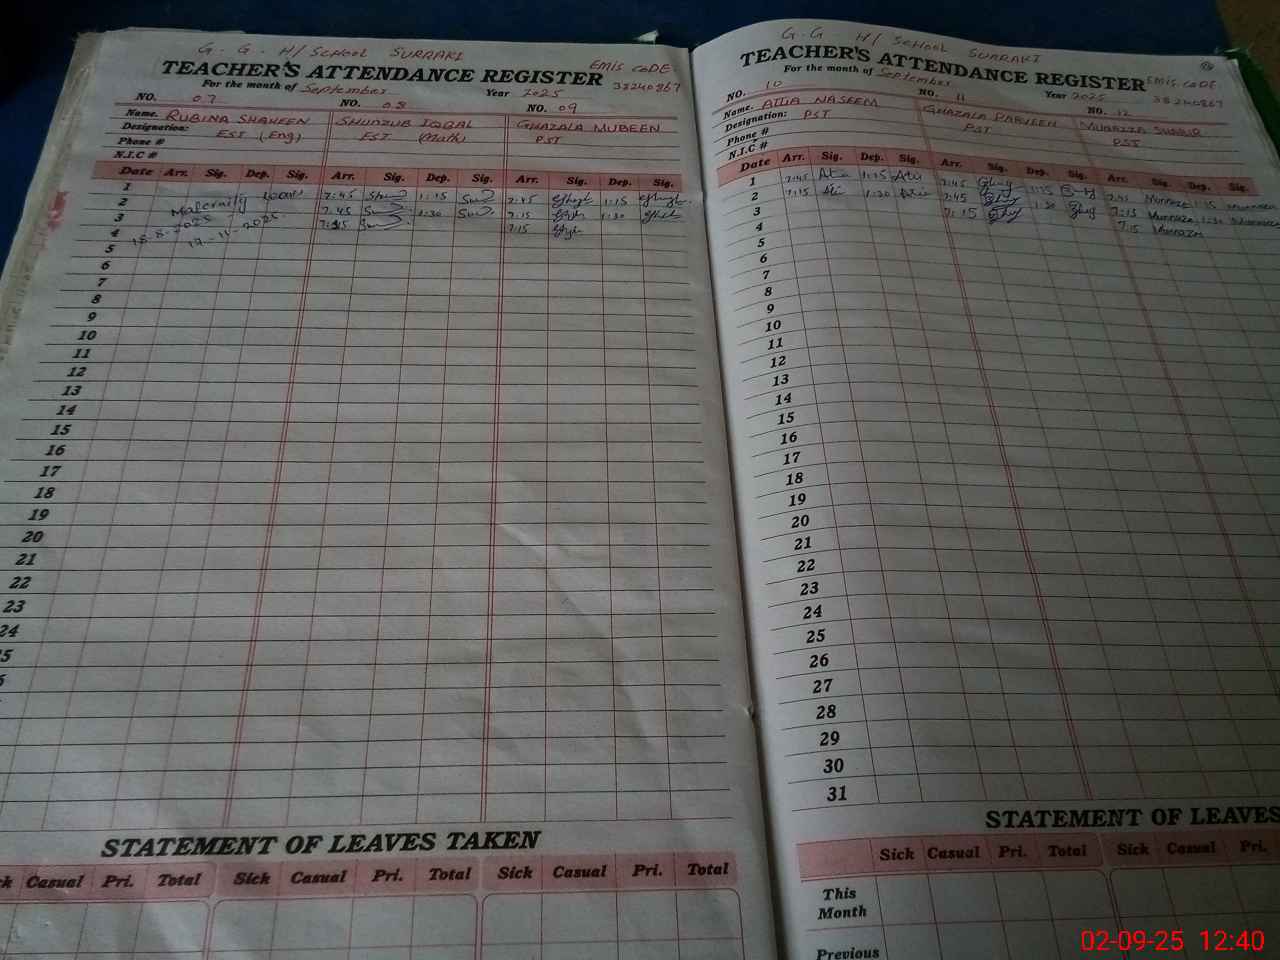 G. G. H/ SCHOOL SURRAKI
TEACHER'S ATTENDANCE REGISTER
EMIS CODE
38240867
For the month of September Year 2025
NO. 07 NO. 08 NO. 09
Name. RUBINA SHAHEEN IQBAL GHAZALA MUBEEN
Designation: EST (Eng) EST (Math) PST
Phone #
N.I.C #
Date Arr. Sig. Dep. Sig. Arr. Sig. Dep. Sig. Arr. Sig. Dep. Sig.
1 Maternity Leave 7:45 1:15 7:45 1:15
2 7:45 1:30 7:15 1:30
3 18-8-2025 7:15 7:15
4 17-11-2025
5
6
7
8
9
10
11
12
13
14
15
16
17
18
19
20
21
22
23
24
STATEMENT OF LEAVES TAKEN
Casual Pri. Total Sick Casual Pri. Total Sick Casual Pri. Total
G. G. H/ SCHOOL SURRAKI
TEACHER'S ATTENDANCE REGISTER
EMIS CODE
38240867
For the month of September Year 2025
NO. 10 NO. 11 NO. 12
Name. ATTIA NASEEM GHAZALA PARVEEN
Designation: PST PST PST
Phone #
N.I.C #
Date Arr. Sig. Dep. Sig. Arr. Sig. Dep. Sig. Arr. Sig. Dep. Sig.
1 7:45 1:15 7:45 1:15 7:45 1:15
2 7:15 1:30 7:45 1:30 7:15 1:30
3 7:15 7:15
4
5
6
7
8
9
10
11
12
13
14
15
16
17
18
19
20
21
22
23
24
25
26
27
28
29
30
31
STATEMENT OF LEAVES
Sick Casual Pri. Total Sick Casual Pri.
This
Month
Previous
02-09-25 12:40